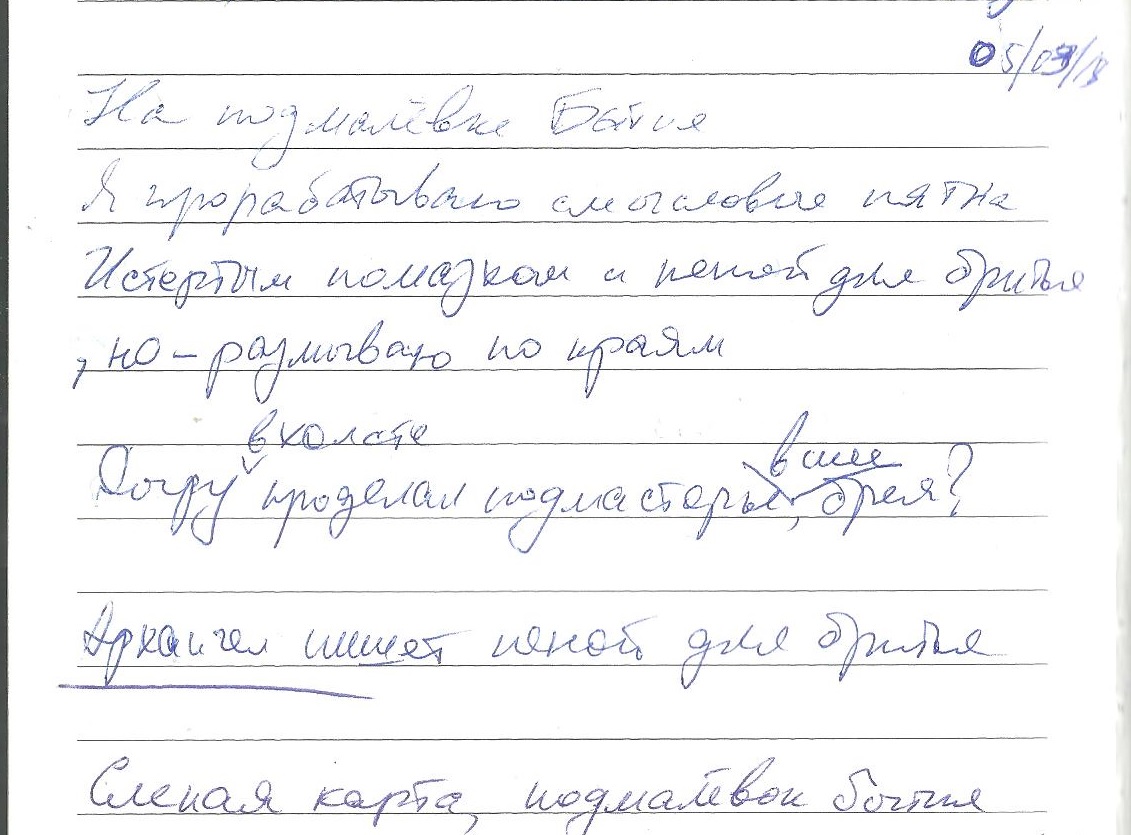 05/03/18
На подмалёвке Бытия
Я прорабатываю смысловые пятна
Истертым помазком и пеной для бритья
, но – размываю по краям
в холсте
Дыру проделал подмастерье, брея?
Архангел пишет пеной для бритья
Слепая карта, подмалёвок бытия